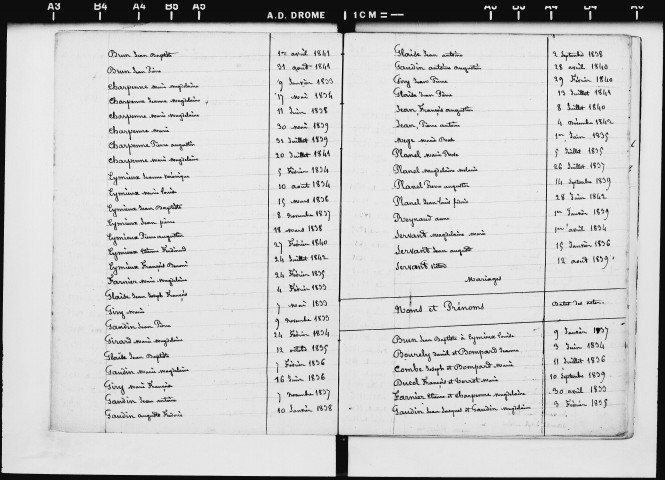 A3 B4 A4 B5 A5 A.D. DROME 1CM A5 B5 A4 B4 A3
Brun Jean Baptiste 1er avril 1841
Brun Jean Pierre 31 août 1841
Charpenne Marie Magdelaine 9 Janvier 1833
Charpenne Jeanne Magdelaine 17 mai 1834
Charpenne Marie Magdelaine 11 Juin 1838
Charpenne Marie 30 mai 1839
Charpenne Pierre augustin 31 Juillet 1839
Charpenne Marie Magdelaine 20 Juillet 1841
Eymieux Jeanne Véronique 5 Février 1834
Eymieux Marie Louise 10 août 1834
Eymieux Jean Baptiste 15 mars 1836
Eymieux Jean pierre 8 novembre 1837
Eymieux Pierre augustin 18 mars 1838
Eymieux Etienne Ferdinand 27 Février 1840
Eymieux François Benoni 24 Juillet 1842
Farnier Marie Magdelaine 24 Février 1835
Glaise Jean Joseph François 4 Février 1833
Giry Marie 7 mai 1833
Gaudin Jean Pierre 9 novembre 1833
Girard Marie Magdelaine 24 Février 1834
Glaise Jean Baptiste 12 octobre 1835
Gaudin Marie Magdelaine 7 Février 1836
Giry Marie François 26 Juin 1836
Gaudin Jean antoine 7 novembre 1837
Gaudin auguste Frédéric 10 Janvier 1838
Glaise Jean antoine 2 Septembre 1838
Gaudin antoine augustin 28 avril 1840
Giry Jean Pierre 29 Février 1840
Glaise Jean Pierre 13 Juillet 1841
Jean, François augustin 8 Juillet 1840
Jean, Pierre antoine 4 décembre 1842
Marie Rose 1er Juin 1835
Planel Marie Rose 5 Juillet 1835
Planel Magdelaine Mélanie 26 Juillet 1837
Planel Pierre auguste 14 Septembre 1839
Planel Jean Louis 28 Juin 1842
Reynaud anne 1er Janvier 1839
Servant Magdelaine Marie 1er avril 1834
Servant Jean august 15 Janvier 1836
Servant 12 août 1839
Mariages
Noms et Prénoms Dates des actes
Brun Jean Baptiste à Eymieux Louise 9 Janvier 1837
et Bompard Jeanne 3 Juin 1834
Combe Joseph et Bompard Marie 11 Juillet 1836
François et Marie 10 Septembre 1839
Farnier Etienne et Charpenne Magdelaine 30 avril 1833
Gaudin Jean Jacques et Gaudin Magdelaine 3 Février 1835